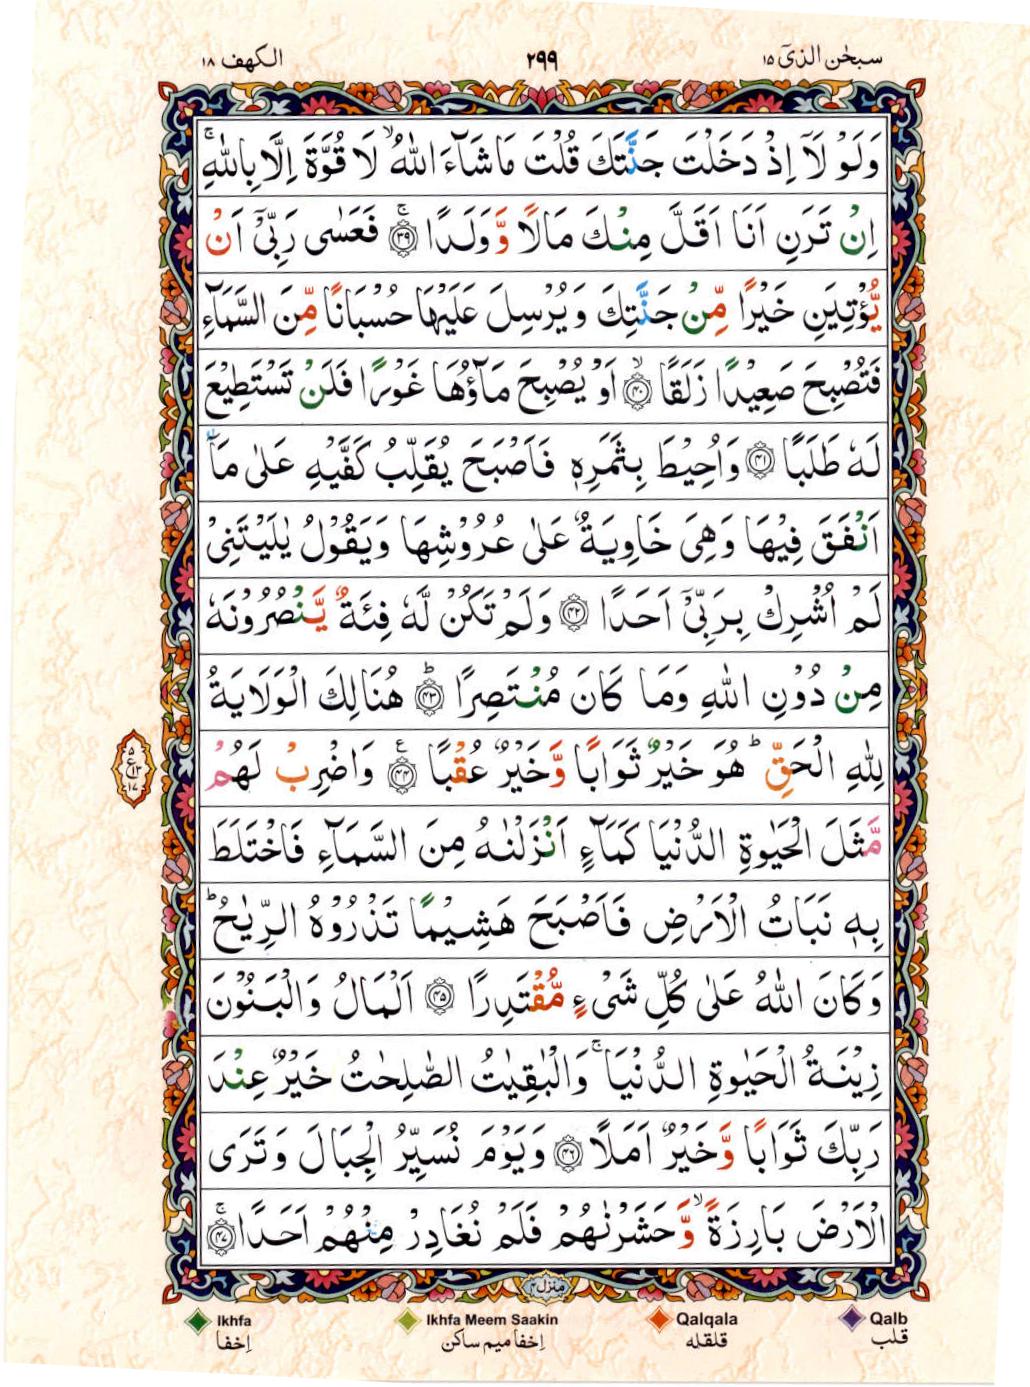 سبحٰن الذیٓ ۱۵
۲۹۹
الکهف ۱۸
وَلَوْ لَاۤ اِذْ دَخَلْتَ جَنَّتَكَ قُلْتَ مَا شَآءَ اللّٰهُ ۙ لَا قُوَّةَ اِلَّا بِاللّٰهِ ۚ
اِنْ تَرَنِ اَنَا اَقَلَّ مِنْكَ مَالًا وَّ وَلَدًا ۚ‏﴿۳۹﴾ فَعَسٰى رَبِّىْۤ اَنْ
يُّؤْتِيَنِ خَيْرًا مِّنْ جَنَّتِكَ وَ يُرْسِلَ عَلَيْهَا حُسْبَانًا مِّنَ السَّمَآءِ
فَتُصْبِحَ صَعِيْدًا زَلَقًا ۙ‏﴿۴۰﴾ اَوْ يُصْبِحَ مَآؤُهَا غَوْرًا فَلَنْ تَسْتَطِيْعَ
لَهٗ طَلَبًا ﴿۴۱﴾ وَاُحِيْطَ بِثَمَرِهٖ فَاَصْبَحَ يُقَلِّبُ كَفَّيْهِ عَلٰى مَاۤ
اَنْفَقَ فِيْهَا وَهِىَ خَاوِيَةٌ عَلٰى عُرُوْشِهَا وَيَقُوْلُ يٰلَيْتَنِىْ
لَمْ اُشْرِكْ بِرَبِّىْۤ اَحَدًا ﴿۴۲﴾ وَلَمْ تَكُنْ لَّهٗ فِئَةٌ يَّنْصُرُوْنَهٗ
مِنْ دُوْنِ اللّٰهِ وَمَا كَانَ مُنْتَصِرًا ؕ‏﴿۴۳﴾ هُنَالِكَ الْوَلَايَةُ
لِلّٰهِ الْحَقِّ ؕ هُوَ خَيْرٌ ثَوَابًا وَّخَيْرٌ عُقْبًا ﴿۴۴﴾ ع وَاضْرِبْ لَهُمْ
۵
ع ۱۳
۱۷
مَّثَلَ الْحَيٰوةِ الدُّنْيَا كَمَآءٍ اَنْزَلْنٰهُ مِنَ السَّمَآءِ فَاخْتَلَطَ
بِهٖ نَبَاتُ الْاَرْضِ فَاَصْبَحَ هَشِيْمًا تَذْرُوْهُ الرِّيٰحُ ؕ
وَكَانَ اللّٰهُ عَلٰى كُلِّ شَىْءٍ مُّقْتَدِرًا ﴿۴۵﴾ اَلْمَالُ وَالْبَنُوْنَ
زِيْنَةُ الْحَيٰوةِ الدُّنْيَا ۚ وَالْبٰقِيٰتُ الصّٰلِحٰتُ خَيْرٌ عِنْدَ
رَبِّكَ ثَوَابًا وَّخَيْرٌ اَمَلًا ﴿۴۶﴾ وَيَوْمَ نُسَيِّرُ الْجِبَالَ وَتَرَى
الْاَرْضَ بَارِزَةً ۙ وَّحَشَرْنٰهُمْ فَلَمْ نُغَادِرْ مِنْهُمْ اَحَدًا ۚ‏﴿۴۷﴾
منزل ۴
Ikhfa Ikhfa Meem Saakin Qalqala Qalb
اِخفا اِخفا میم ساکن قلقله قلب